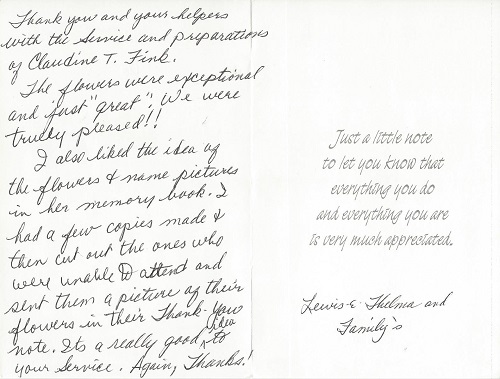 Thank you and your helpers
with the Service and preparations
of Claudine T. Fink.
The flowers were exceptional
and just "great". We were
truely pleased!!
I also liked the idea of
the flowers & name pictures
in her memory book. I
had a few copies made &
then cut out the ones who
were unable to attend and
sent them a picture of their
flowers in their Thank-You
note. Its a really good idea to
your Service. Again, Thanks!
Just a little note
to let you know that
everything you do
and everything you are
is very much appreciated.
Lewis E. Thelma and
Family's